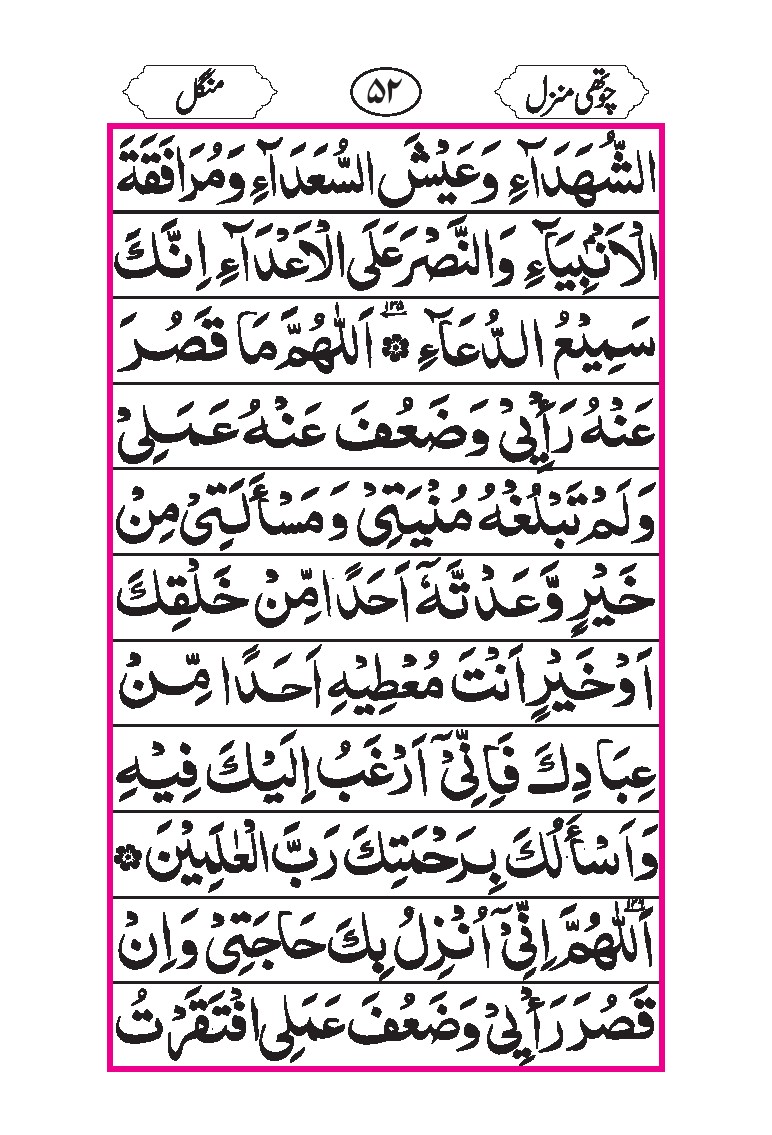 چوتھی منزل ۵۲ منگل
الشُّهَدَآءِ وَعَيْشَ السُّعَدَآءِ وَمُرَافَقَةَ
الْاَنْۢبِيَآءِ وَالنَّصْرَ عَلَى الْاَعْدَآءِ اِنَّكَ
سَمِيْعُ الدُّعَآءِ ۞ ۱۳۵ اَللّٰهُمَّ مَا قَصُرَ
عَنْهُ رَأْيِيْ وَضَعُفَ عَنْهُ عَمَلِيْ
وَلَمْ تَبْلُغْهُ مُنْيَتِيْ وَمَسْأَلَتِيْ مِنْ
خَيْرٍ وَّعَدْتَّهٗٓ اَحَدًا مِّنْ خَلْقِكَ
اَوْ خَيْرٍ اَنْتَ مُعْطِيْهِ اَحَدًا مِّنْ
عِبَادِكَ فَاِنِّيْٓ اَرْغَبُ اِلَيْكَ فِيْهِ
وَاَسْأَلُكَ بِرَحْمَتِكَ رَبَّ الْعٰلَمِيْنَ ۞
۱۳۶ اَللّٰهُمَّ اِنِّيْٓ اُنْزِلُ بِكَ حَاجَتِيْ وَاِنْ
قَصُرَ رَأْيِيْ وَضَعُفَ عَمَلِى افْتَقَرْتُ